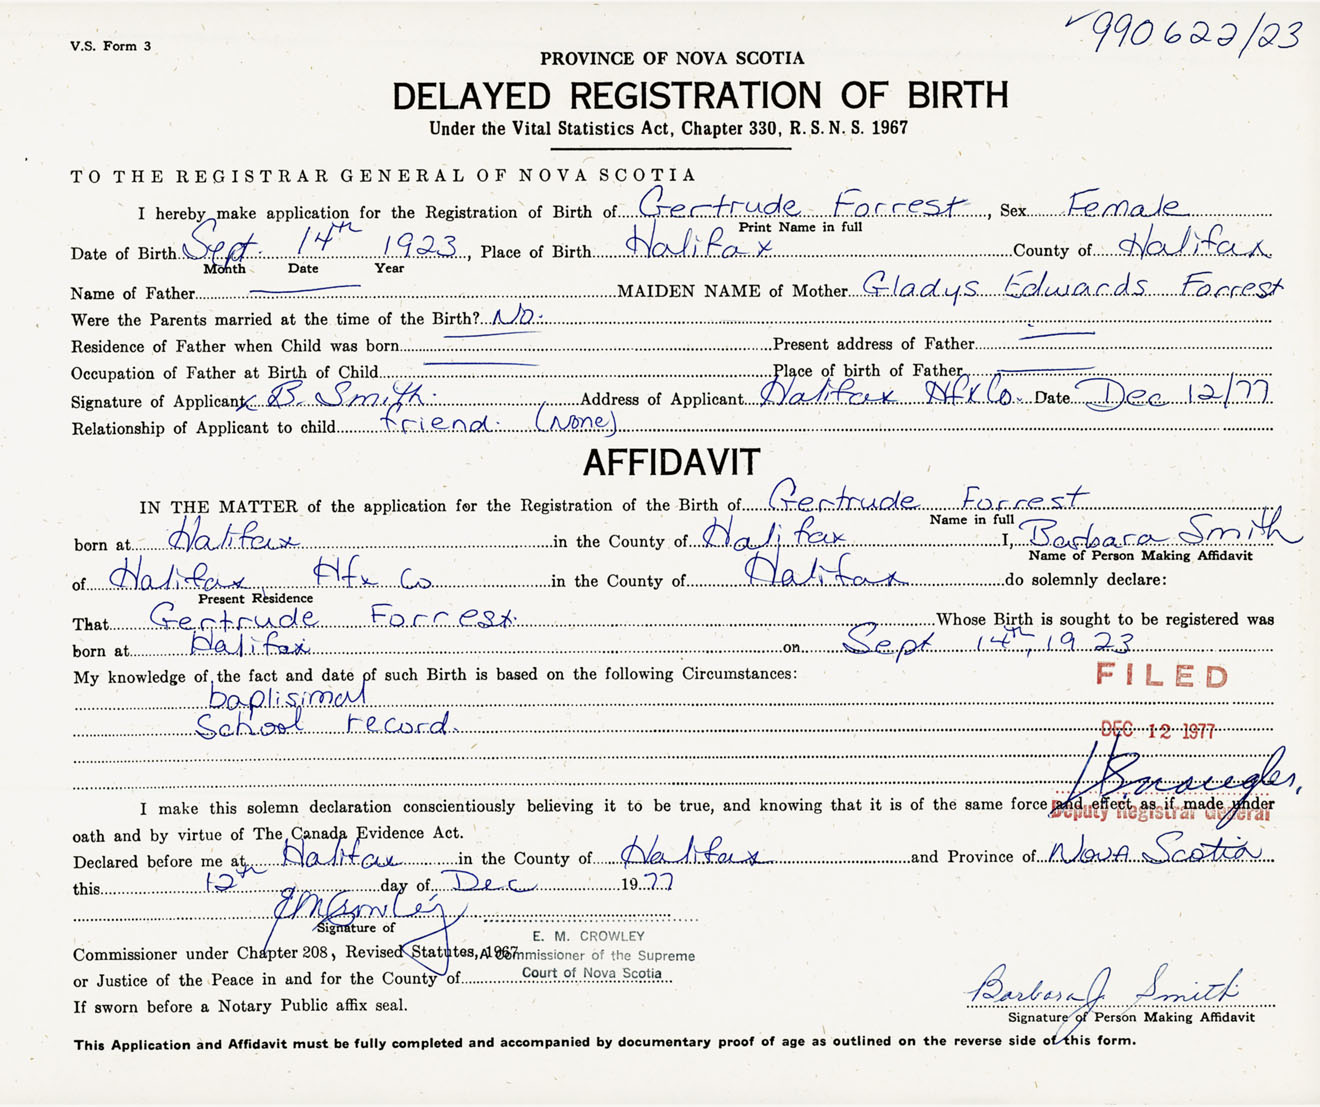 ✓990622/23
V.S. Form 3
PROVINCE OF NOVA SCOTIA
DELAYED REGISTRATION OF BIRTH
Under the Vital Statistics Act, Chapter 330, R.S.N.S. 1967
TO THE REGISTRAR GENERAL OF NOVA SCOTIA
I hereby make application for the Registration of Birth of Gertrude Forrest, Sex Female
Print Name in full
Date of Birth Sept. 14th 1923, Place of Birth Halifax County of Halifax
Month Date Year
Name of Father MAIDEN NAME of Mother Gladys Edwards Forrest
Were the Parents married at the time of the Birth? No.
Residence of Father when Child was born Present address of Father
Occupation of Father at Birth of Child Place of birth of Father
Signature of Applicant x B. Smith. Address of Applicant Halifax Hfx Co. Date Dec 12/77
Relationship of Applicant to child friend. (None)
AFFIDAVIT
IN THE MATTER of the application for the Registration of the Birth of Gertrude Forrest
Name in full
born at Halifax in the County of Halifax I, Barbara Smith
Name of Person Making Affidavit
of Halifax Hfx Co in the County of Halifax do solemnly declare:
Present Residence
That Gertrude Forrest. Whose Birth is sought to be registered was
born at Halifax on Sept 14th, 1923
My knowledge of the fact and date of such Birth is based on the following Circumstances:
FILED
baptisimal
School record.
DEC 12 1977
I make this solemn declaration conscientiously believing it to be true, and knowing that it is of the same force and effect as if made under
Deputy Registrar General
oath and by virtue of The Canada Evidence Act.
Declared before me at Halifax in the County of Halifax and Province of Nova Scotia
this 12th day of Dec 1977
EM Crowley
Signature of
E. M. CROWLEY
Commissioner under Chapter 208, Revised Statutes, 1967
A Commissioner of the Supreme
Court of Nova Scotia
or Justice of the Peace in and for the County of
If sworn before a Notary Public affix seal.
Barbara J. Smith
Signature of Person Making Affidavit
This Application and Affidavit must be fully completed and accompanied by documentary proof of age as outlined on the reverse side of this form.